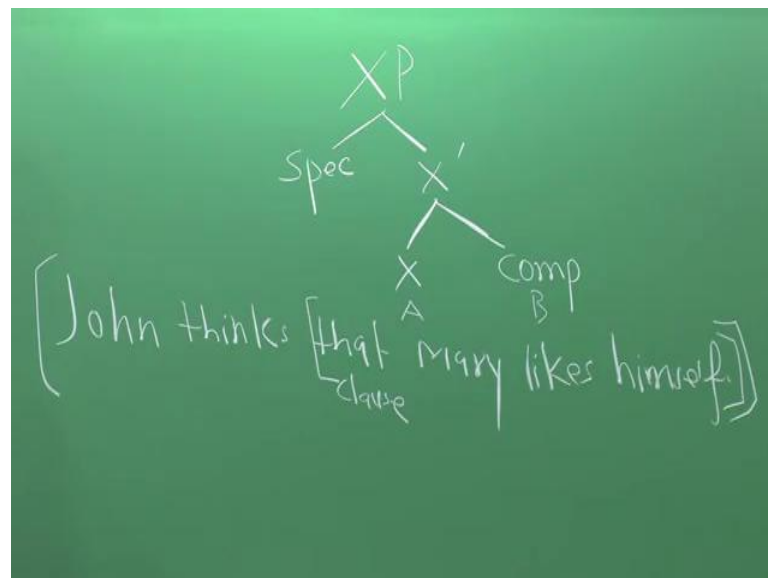 XP
Spec X'
X Comp
A B
[John thinks [that Mary likes himself.]]
clause